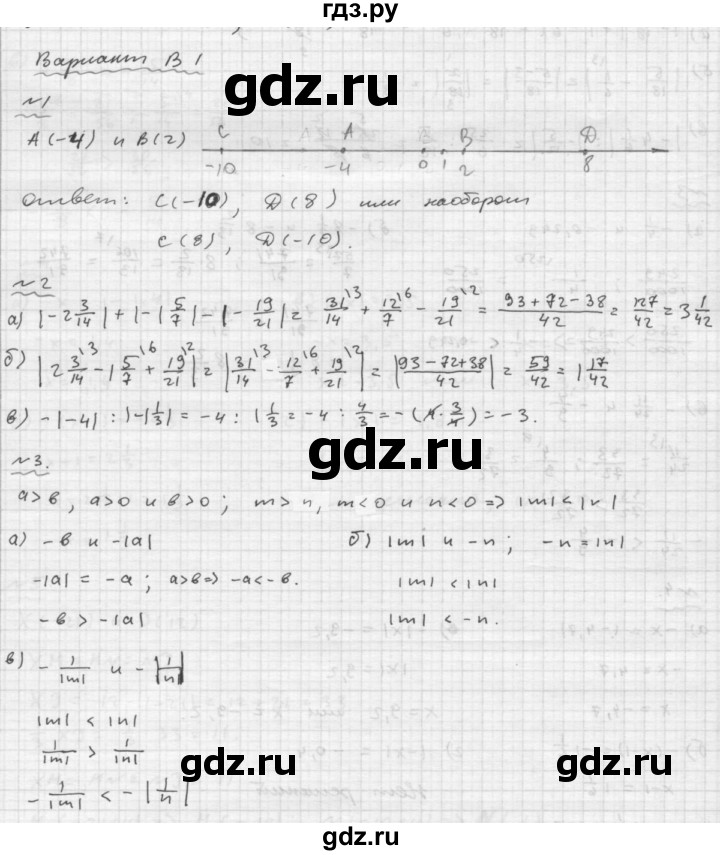 гдз.ру
Вариант В 1
gdz.ru
№1
А(-4) и В(2)
C A B D
-10 -4 0 1 2 8
ответ: C(-10), D(8) или наоборот
C(8), D(-10).
№2
а) |-2 3/14| + |-1 5/7| - |-19/21| = 31/14 \3 + 12/7 \6 - 19/21 \2 = (93+72-38)/42 = 127/42 = 3 1/42
б) |2 3/14 \3 - 1 5/7 \6 + 19/21 \2| = |31/14 \3 - 12/7 \6 + 19/21 \2| = |(93-72+38)/42| = 59/42 = 1 17/42
в) -|-4| : |-1 1/3| = -4 : 1 1/3 = -4 : 4/3 = -(4 · 3/4) = -3.
gdz.ru
№3.
а>в, а>0 и в>0; m>n, m<0 и n<0 => |m|<|n|
а) -в и -|а|
б) |m| и -n; -n=|n|
-|а| = -а; а>в=> -а<-в.
|m| < |n|
-в > -|а|
|m| < -n.
в) -1/|m| и -|1/n|
|m| < |n|
1/|m| > 1/|n|
gdz.ru
gdz.ru
-1/|m| < -|1/n|
gdz.ru